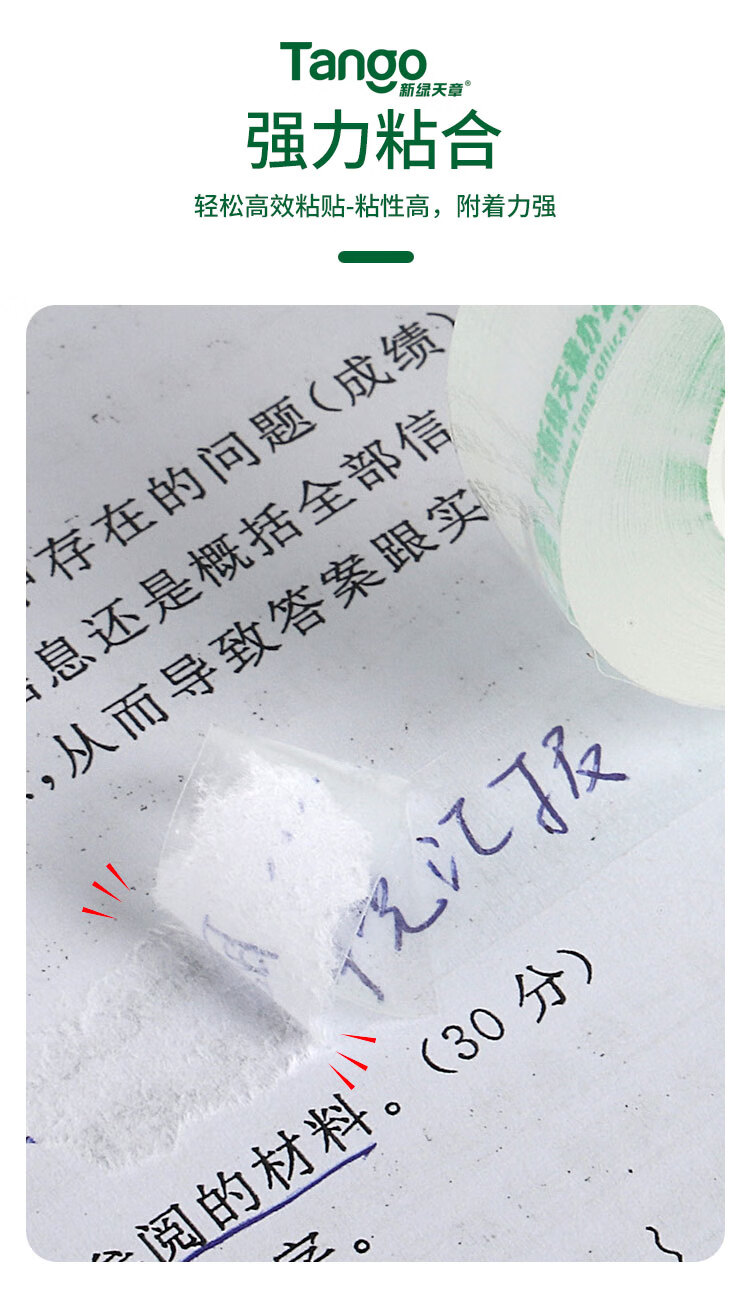 Tango
新绿天章®
强力粘合
轻松高效粘贴-粘性高，附着力强
存在的问题（成绩）
息还是概括全部信
，从而导致答案跟实
新绿天章办
Tango Office
况汇报
（30 分）
阅的材料。
字。